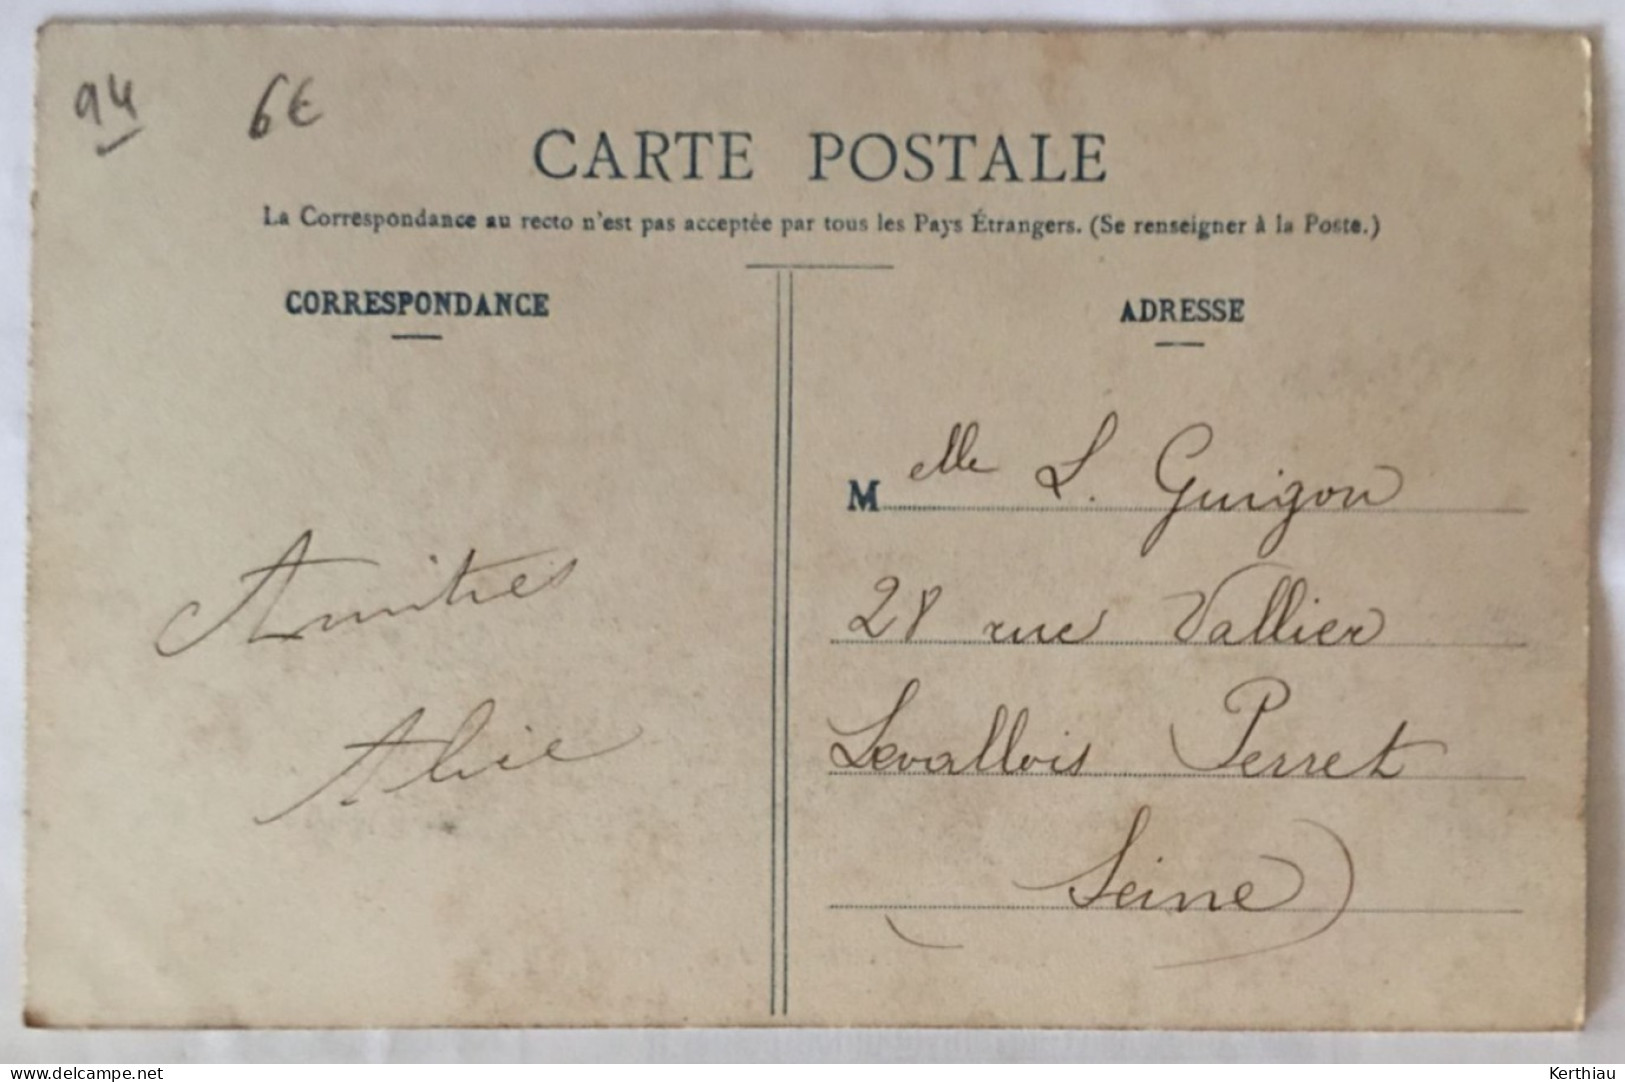 94 6€
CARTE POSTALE
La Correspondance au recto n'est pas acceptée par tous les Pays Étrangers. (Se renseigner à la Poste.)
CORRESPONDANCE
ADRESSE
Amitiés
Alice
Melle L. Guigon
28 rue Vallier
Levallois Perret
Seine
www.delcampe.net
Kerthiau